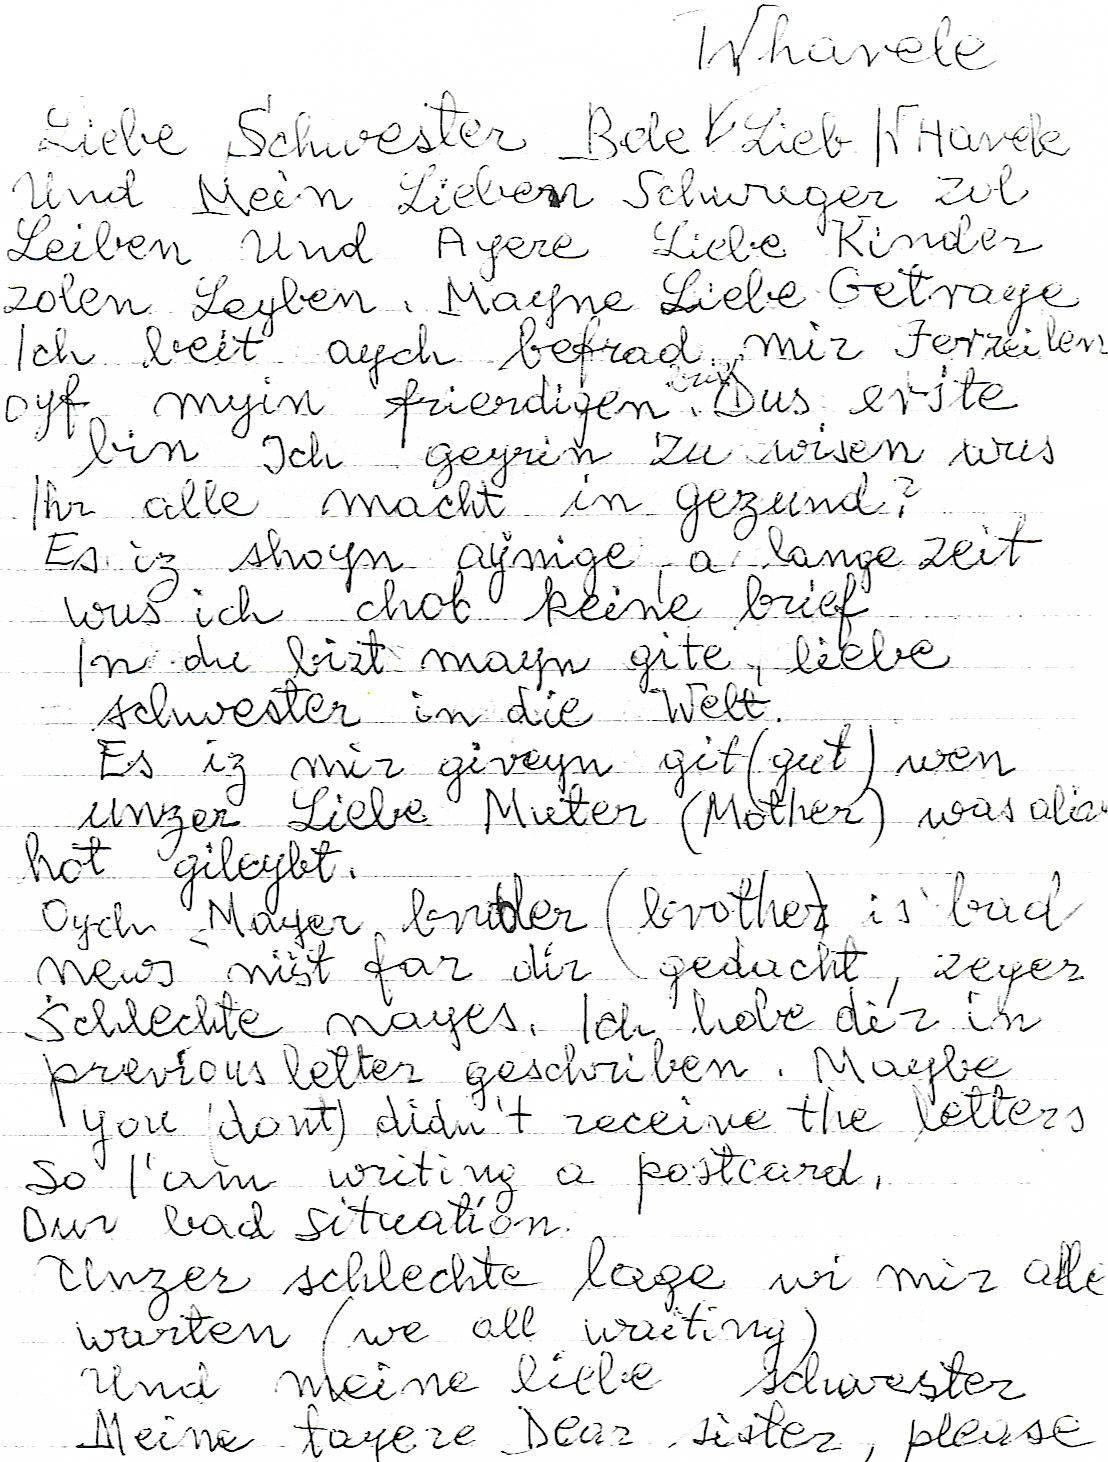 Whavele
Liebe Schwester Bde V Lieb W Havele
Und Mein Lieben Schwuger zol
Leiben Und Ayere Liebe Kinder
zolen Leyben. Mayne Liebe Getraye
Ich beit aych befrad mir Ferzeilen
oyf myin frierdigen brif. Dus erste
bin Ich geyrin zu wisen wus
Ihr alle macht in gezund?
Es iz shoyn aynige, a lange zeit
wus ich chob keine brief
In du bizt mayn gite, liebe
schwester in die Welt.
Es iz mir giveyn git (gut) wen
unzer Liebe Muter (Mother) was aliv
hot gileybt.
Oych Mayer bruder (brother) is bad
news nist far dir gedacht, zeyer
Schlechte nayes. Ich hobe dir in
previous letter geschriben. Maybe
you (dont) didn't receive the letters
So I'am writing a postcard.
Our bad situation.
Unzer schlechte lage wi mir alle
warten (we all waiting)
Und meine liebe schwester
Meine tayere Dear sister, please